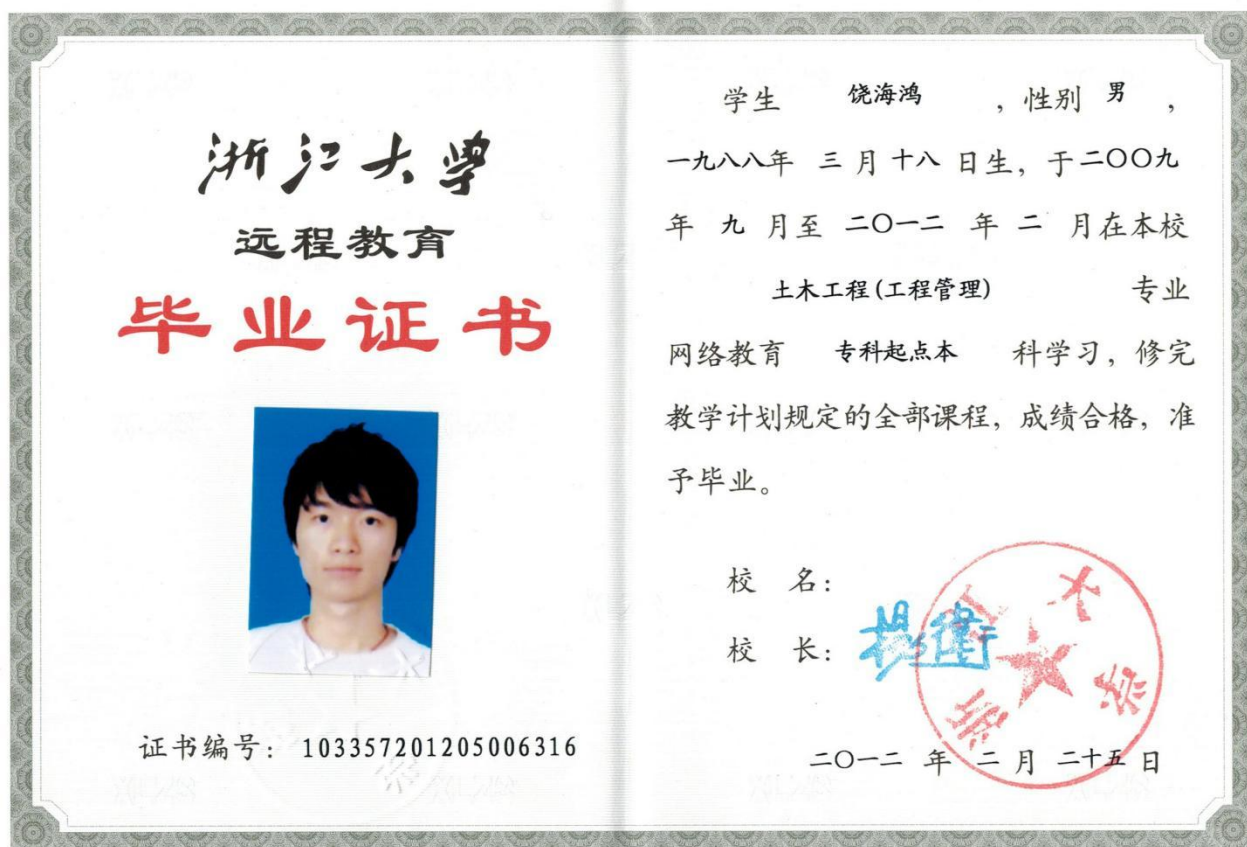 浙江大学
远程教育
毕业证书
证书编号：103357201205006316
学生 饶海鸿 ，性别 男 ，
一九八八年 三 月 十八 日生，于二〇〇九
年 九 月至 二〇一二 年 二 月在本校
土木工程(工程管理) 专业
网络教育 专科起点本 科学习，修完
教学计划规定的全部课程，成绩合格，准
予毕业。
校 名：
校 长：杨卫
浙江大学
二〇一二 年 二 月 二十五 日